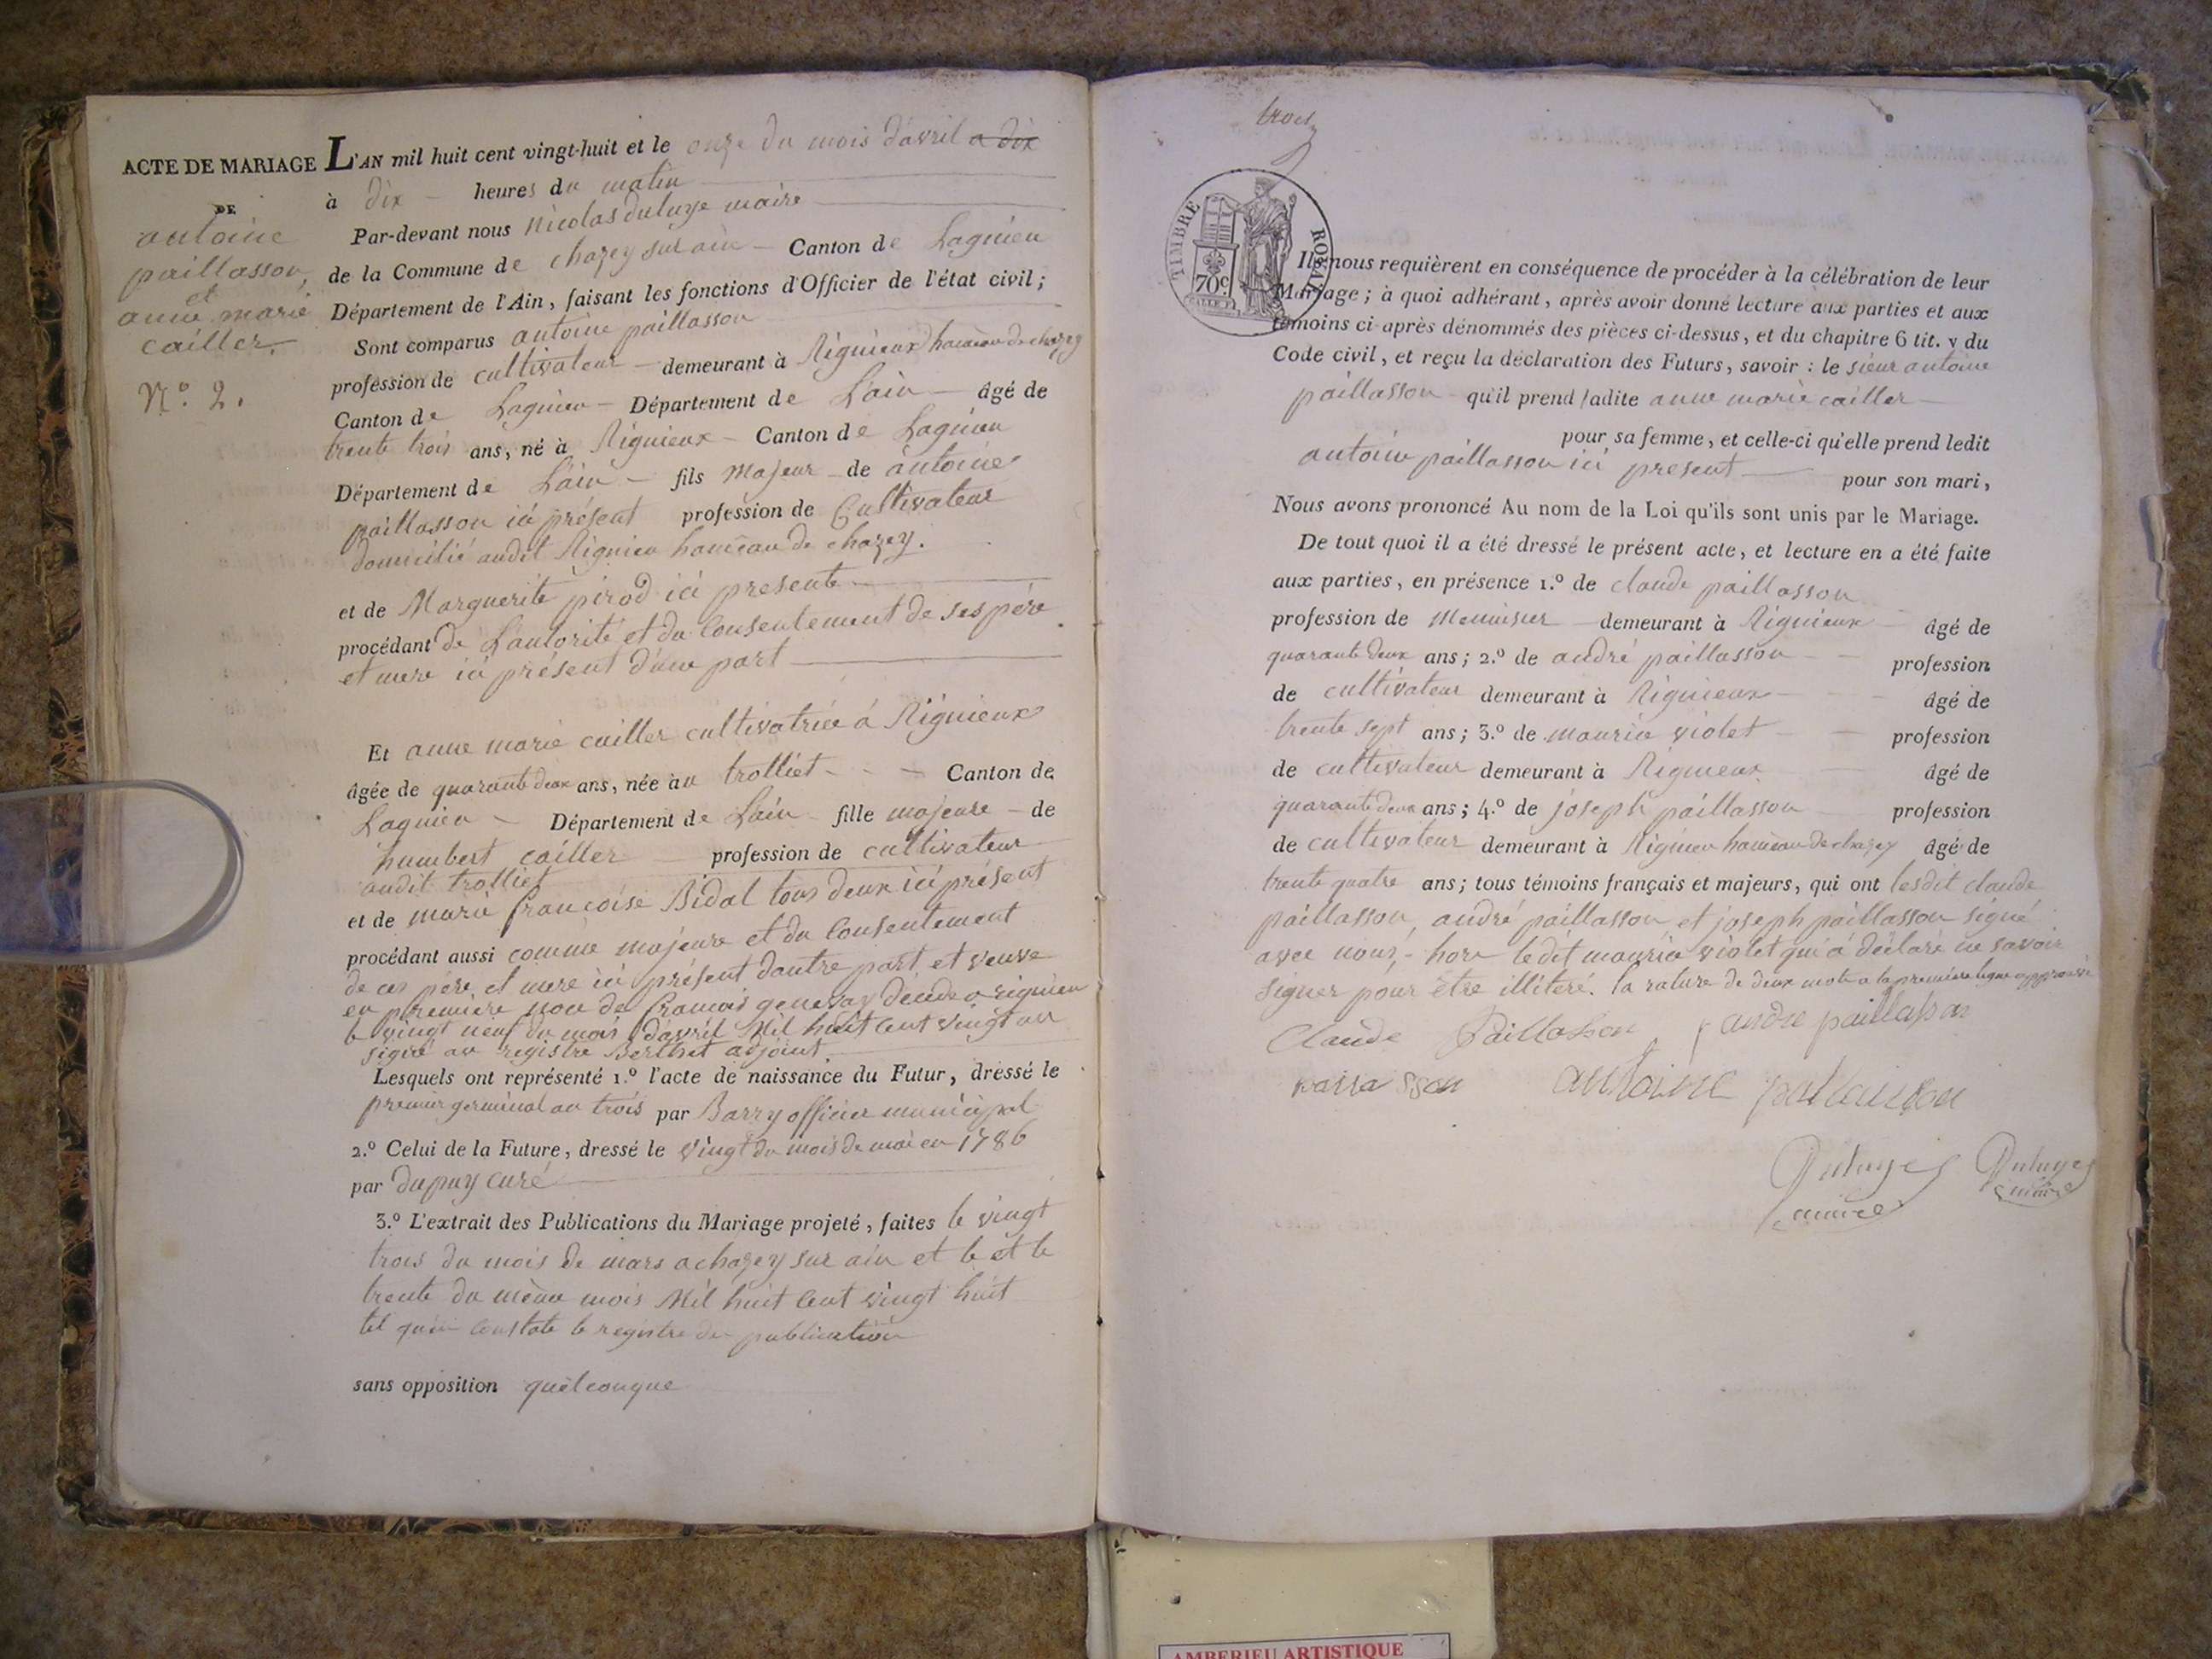 ACTE DE MARIAGE
DE
antoine
paillasson,
et
anne marie
cailler.
N.º 2.
L'AN mil huit cent vingt-huit et le onze du mois d'avril a dix
à dix heures du matin
Par-devant nous nicolas duluye maire
de la Commune de chazey sur ain Canton de Lagnieu
Département de l'Ain, faisant les fonctions d'Officier de l'état civil;
Sont comparus antoine paillasson
profession de cultivateur demeurant à Rignieux hameau de chazey
Canton de Lagnieu Département de L'ain âgé de
trente trois ans, né à Rignieux Canton de Lagnieu
Département de L'ain fils majeur de antoine
paillasson ici présent profession de Cultivateur
domicilié audit Rignieu hameau de chazey.
et de Marguerite pirod ici presente
procédant de L'autorité et du Consentement de ses pére
et mere ici présent d'une part
Et anne marie cailler cultivatrice á Rignieux
âgée de quarante deux ans, née au trolliet Canton de
Lagnieu Département de Lain fille majeure de
humbert cailler profession de cultivateur
audit trolliet
et de marie françoise Bidal tous deux ici présent
procédant aussi comme majeure et du Consentement
de ces pére et mere ici présent dautre part et veuve
en premiere nou de francois genevay décédé a rignieu
le vingt neuf du mois d'avril Mil huit Cent vingt un
signé au registre Berthet adjoint.
Lesquels ont représenté 1.º l'acte de naissance du Futur, dressé le
premier germinal an trois par Barry officier municipal
2.º Celui de la Future, dressé le vingt du mois de mai en 1786
par dupuy curé
3.º L'extrait des Publications du Mariage projeté, faites le vingt
trois du mois de mars a chazey sur ain et le et le
trente du même mois Mil huit Cent vingt huit
tel qu'en Constate le registre de publication
sans opposition quelconque
trois
TIMBRE ROYAL
70c
Ils nous requièrent en conséquence de procéder à la célébration de leur
Mariage; à quoi adhérant, après avoir donné lecture aux parties et aux
témoins ci-après dénommés des pièces ci-dessus, et du chapitre 6 tit. v du
Code civil, et reçu la déclaration des Futurs, savoir : le sieur antoine
paillasson qu'il prend ladite anne marie cailler
pour sa femme, et celle-ci qu'elle prend ledit
antoine paillasson ici present pour son mari,
Nous avons prononcé Au nom de la Loi qu'ils sont unis par le Mariage.
De tout quoi il a été dressé le présent acte, et lecture en a été faite
aux parties, en présence 1.º de claude paillasson
profession de Menuisier demeurant à Rignieux âgé de
quarante deux ans; 2.º de andré paillasson profession
de cultivateur demeurant à Rignieux âgé de
trente sept ans; 3.º de maurice violet profession
de cultivateur demeurant à Rignieux âgé de
quarante deux ans; 4.º de joseph paillasson profession
de cultivateur demeurant à Rignieu hameau de chazey âgé de
trente quatre ans; tous témoins français et majeurs, qui ont lesdit claude
paillasson, andré paillasson et joseph paillasson signé
avec nous, hor ledit maurice violet qui a déclaré ne savoir
signer pour être illiteré. la rature de deux mots a la premiere ligne approuvé
Claude Paillasson j andre paillasson
antoine
Duluye Duluye
maire maire
AMBERIEU ARTISTIQUE